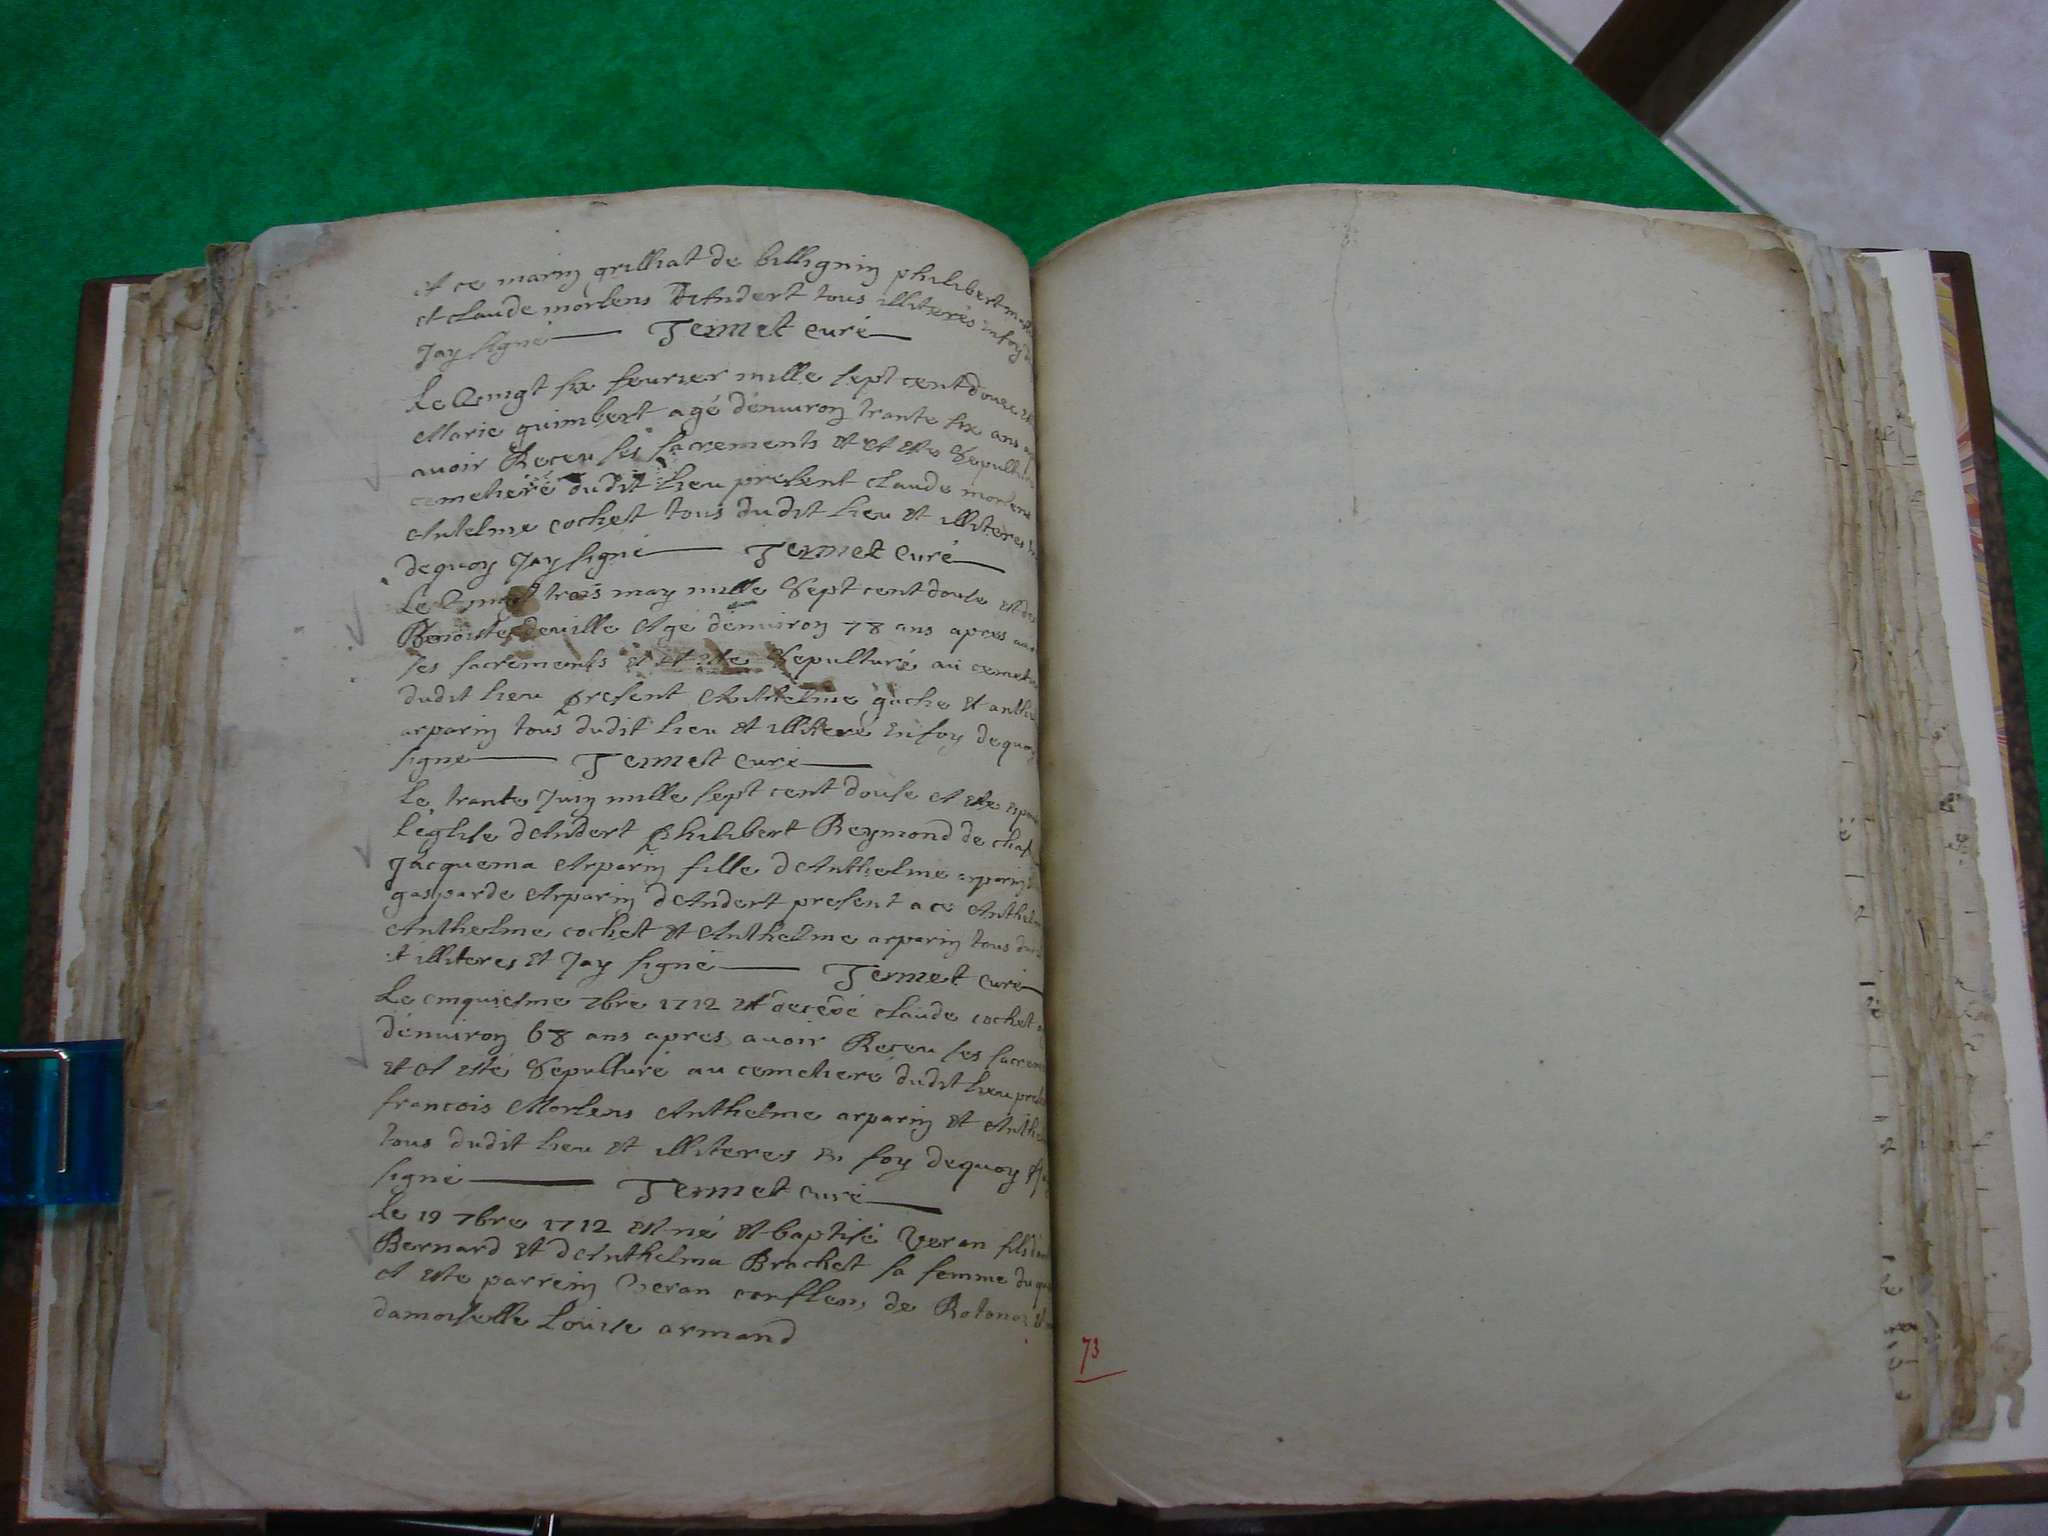 et ce marin grilliat de billignin philibert
et claude morlens d'Andert tous illiterés en foy
Jay signé Jermet curé
Le vingt six feurier mille sept cent douze
Marie guimbert agé d'enuiron trante six ans
auoir Receu ses sacrements et et este Sepulturé
cemetiére dudit lieu present claude morlens
Antelme cochet tous dudit lieu et illiteres
dequoy Jay signé Jermet Curé
Le vingt trois may mille Sept cent douse est
Benoiste deuille Agé d'enuiron 78 ans apres
ses sacrements et et este Sepulturé au
dudit lieu present Antelme gache et
arparin tous dudit lieu et illiteré en foy dequoy
signé Jermet Curé
Le trante Juin mille sept cent douse et este
l'église d'Andert philibert Reymond de
Jacquema Arparin fille d'Anthelme arparin
gasparde Arparin d'Andert present a ce
Anthelme cochet et Anthelme arparin tous
et illiteres et Jay signé Jermet Curé
Le cinquiesme 7bre 1712 est decédé claude cochet
d'enuiron 68 ans apres auoir Receu ses
et et esté Sepulturé au cemetiere dudit lieu
francois Morlens Anthelme arparin et
tous dudit lieu et illiteres En foy dequoy
signé Jermet curé
Le 19 7bre 1712 est né et baptisé Veran fils
Bernard et d'Anthelma Brachet sa femme
et este parrein Veran de
damoiselle Louise armand
73